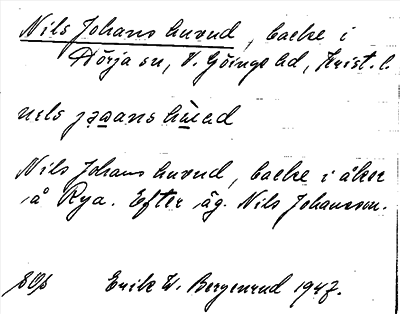 Nils Johans huvud, backe i
Nörja sn, V. Göinge hd, Krist. l.
nels jɷans hɯad
Nils Johans huvud, backe i åker
å Rya. Efter äg. Nils Johansson.
Erik W. Bergenrud 1947.